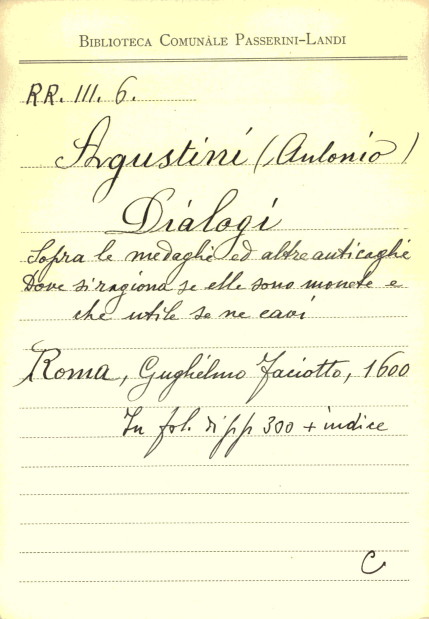 BIBLIOTECA COMUNALE PASSERINI-LANDI
RR. III. 6.
Agustini (Antonio)
Dialogi
Sopra le medaglie ed altre anticaglie
Dove si ragiona se elle sono monete e
che utile se ne cavi
Roma, Guglielmo Faciotto, 1600
In fol. di pp 300 + indice
C